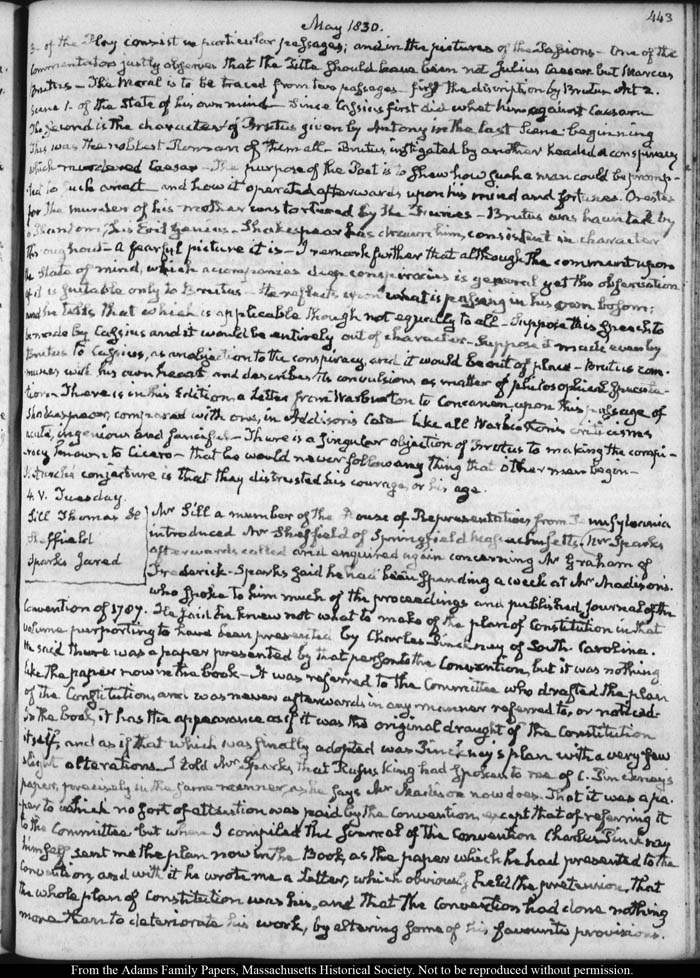 May 1830.
443
of the Play consist in particular passages; and in the pictures of the Passions - One of the
Commentators justly observes that the Title should have been not Julius Caesar but Marcus
Brutus - The Moral is to be traced from two passages - first the discription by Brutus Act 2.
Scene 1. of the State of his own mind - Since Cassius first did whet him against Caesar
The second is the character of Brutus given by Antony in the last Scene beginning
This was the noblest Roman of them all - Brutus instigated by another headed a conspiracy
which murdered Caesar - The purpose of the Poet is to shew how such a man could be promp-
ted to such an act and how it operated afterwards upon his mind and fortunes. Orestes
for the murder of his mother was tortured by the Furies - Brutus was haunted by
a Phantom, his Evil Genius - Shakespear has drawn him, consistent in character
throughout - A fearful picture it is - I remark further that although the comment upon
the State of mind, which accompanies deep conspiracies is general yet the observation
of it is suitable only to Brutus - He reflects upon what is passing in his own bosom;
and he tells that which is applicable though not equally to all - Suppose this speech to
be made by Cassius and it would be entirely out of character - Suppose it made even by
Brutus to Cassius, as an objection to the conspiracy, and it would be out of place - Brutus com-
munes with his own heart and describes its convulsions as matter of philosophical specula-
tion - There is in this Edition a Letter from Warburton to Concanen upon this passage of
Shakespear, compared with one, in Addison's Cato - Like all Warburton's criticisms
acute, ingenious and fanciful - There is a singular objection of Brutus to making the conspi-
racy known to Cicero - that he would never follow any thing that other men began -
conjecture is that they distrusted his courage, or his age.
4. V. Tuesday.
Sill Thomas H
Sheffield
Sparks Jared
Mr Sill a member of the House of Representatives from Pennsylvania
introduced Mr Sheffield of Springfield Massachusetts. Mr Sparks
afterwards called and enquired again concerning Mr Graham of
Frederick - Sparks said he had been spending a week at Mr Madison's.
who spoke to him much of the proceedings and published Journal of the
Convention of 1787. He said he knew not what to make of the plan of Constitution in that
volume purporting to have been presented by Charles Pinckney of South Carolina.
He said there was a paper presented by that person to the Convention, but it was nothing
like the paper now in the book - It was referred to the Committee who drafted the plan
of the Constitution, and was never afterwards in any manner referred to, or noticed -
In the book, it has the appearance as if it was the original draught of the Constitution
itself, and as if that which was finally adopted was Pinckney's plan with a very few
slight alterations. I told Mr Sparks that Rufus King had spoken to me of C. Pinckney's
paper, precisely in the same manner, as he says Mr Madison now does. That it was a pa-
per to which no sort of attention was paid by the Convention, except that of referring it
to the Committee but when I compiled the Journal of the Convention Charles Pinckney
himself sent me the plan now in the Book, as the paper which he had presented to the
Convention, and with it he wrote me a Letter, which obviously held the pretension, that
the whole plan of Constitution was his, and that the Convention had done nothing
more than to deteriorate his work, by altering some of his favourite provisions.
From the Adams Family Papers, Massachusetts Historical Society. Not to be reproduced without permission.